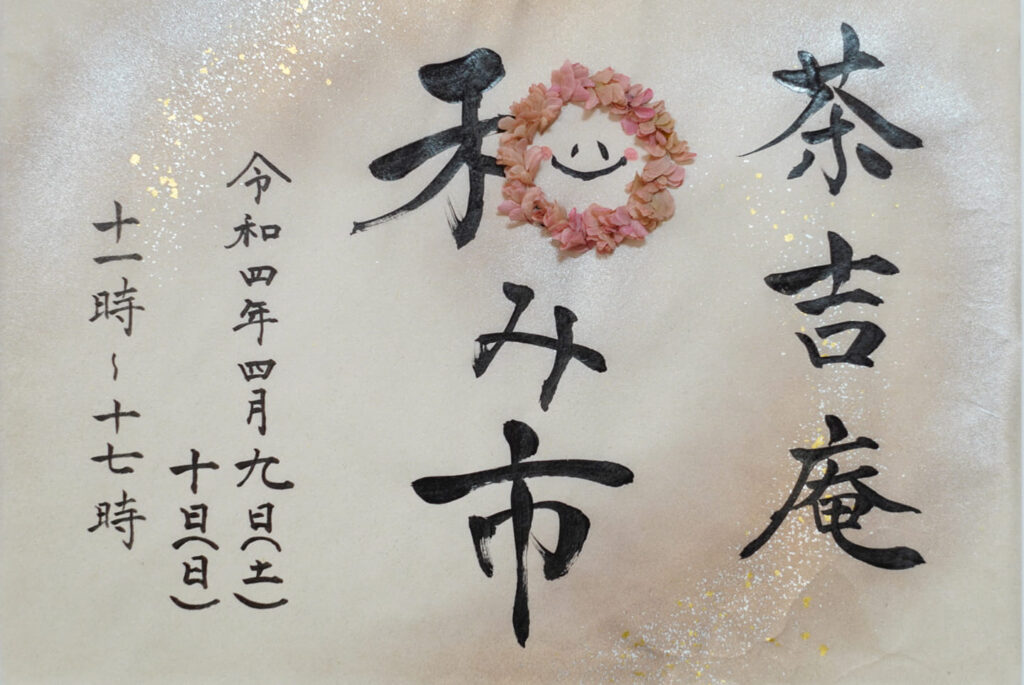 茶吉庵
和み市
令和四年四月九日(土)
十日(日)
十一時～十七時